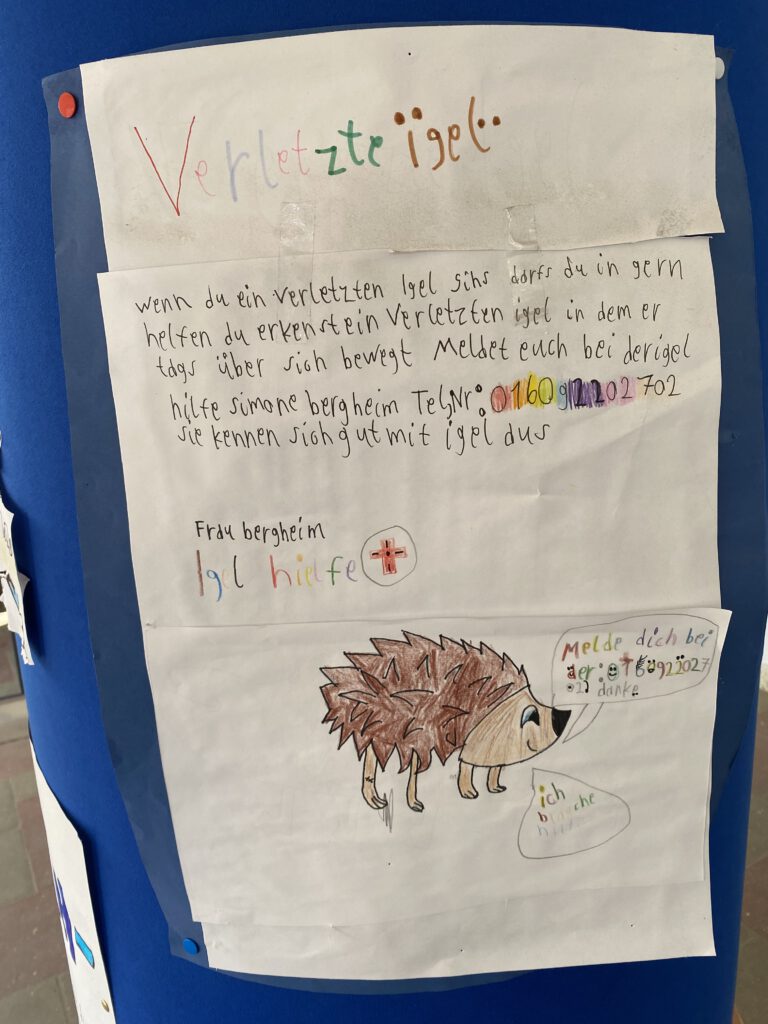 Verletzte igel
wenn du ein verletzten Igel sihs darfs du in gern
helfen du erkenst ein Verletzten igel in dem er
tags über sich bewegt Meldet euch bei derigel
hilfe simone bergheim Tel,Nr: 016092202702
sie kennen sich gut mit igel aus
Frau bergheim
Igel hielfe
Melde dich bei
der: 0160922027
02 danke
ich
brauche